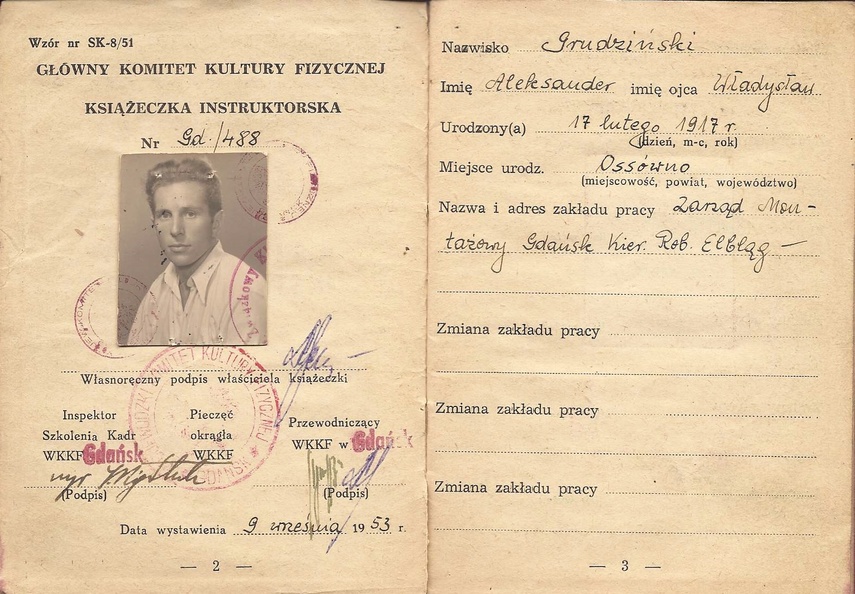 Wzór nr SK-8/51
GŁÓWNY KOMITET KULTURY FIZYCZNEJ
KSIĄŻECZKA INSTRUKTORSKA
Nr Gd./488
Własnoręczny podpis właściciela książeczki
Inspektor
Szkolenia Kadr
WKKF Gdańsk
(Podpis)
Pieczęć
okrągła
WKKF
Przewodniczący
WKKF w Gdańsk
(Podpis)
Data wystawienia 9 września 1953 r.
— 2 —
Nazwisko Grudziński
Imię Aleksander imię ojca Władysław
Urodzony(a) 17 lutego 1917 r
(dzień, m-c, rok)
Miejsce urodz. Ossówno
(miejscowość, powiat, województwo)
Nazwa i adres zakładu pracy Zarząd Mon-
tażowy Gdańsk Kier. Rob. Elbląg —
Zmiana zakładu pracy
Zmiana zakładu pracy
Zmiana zakładu pracy
— 3 —